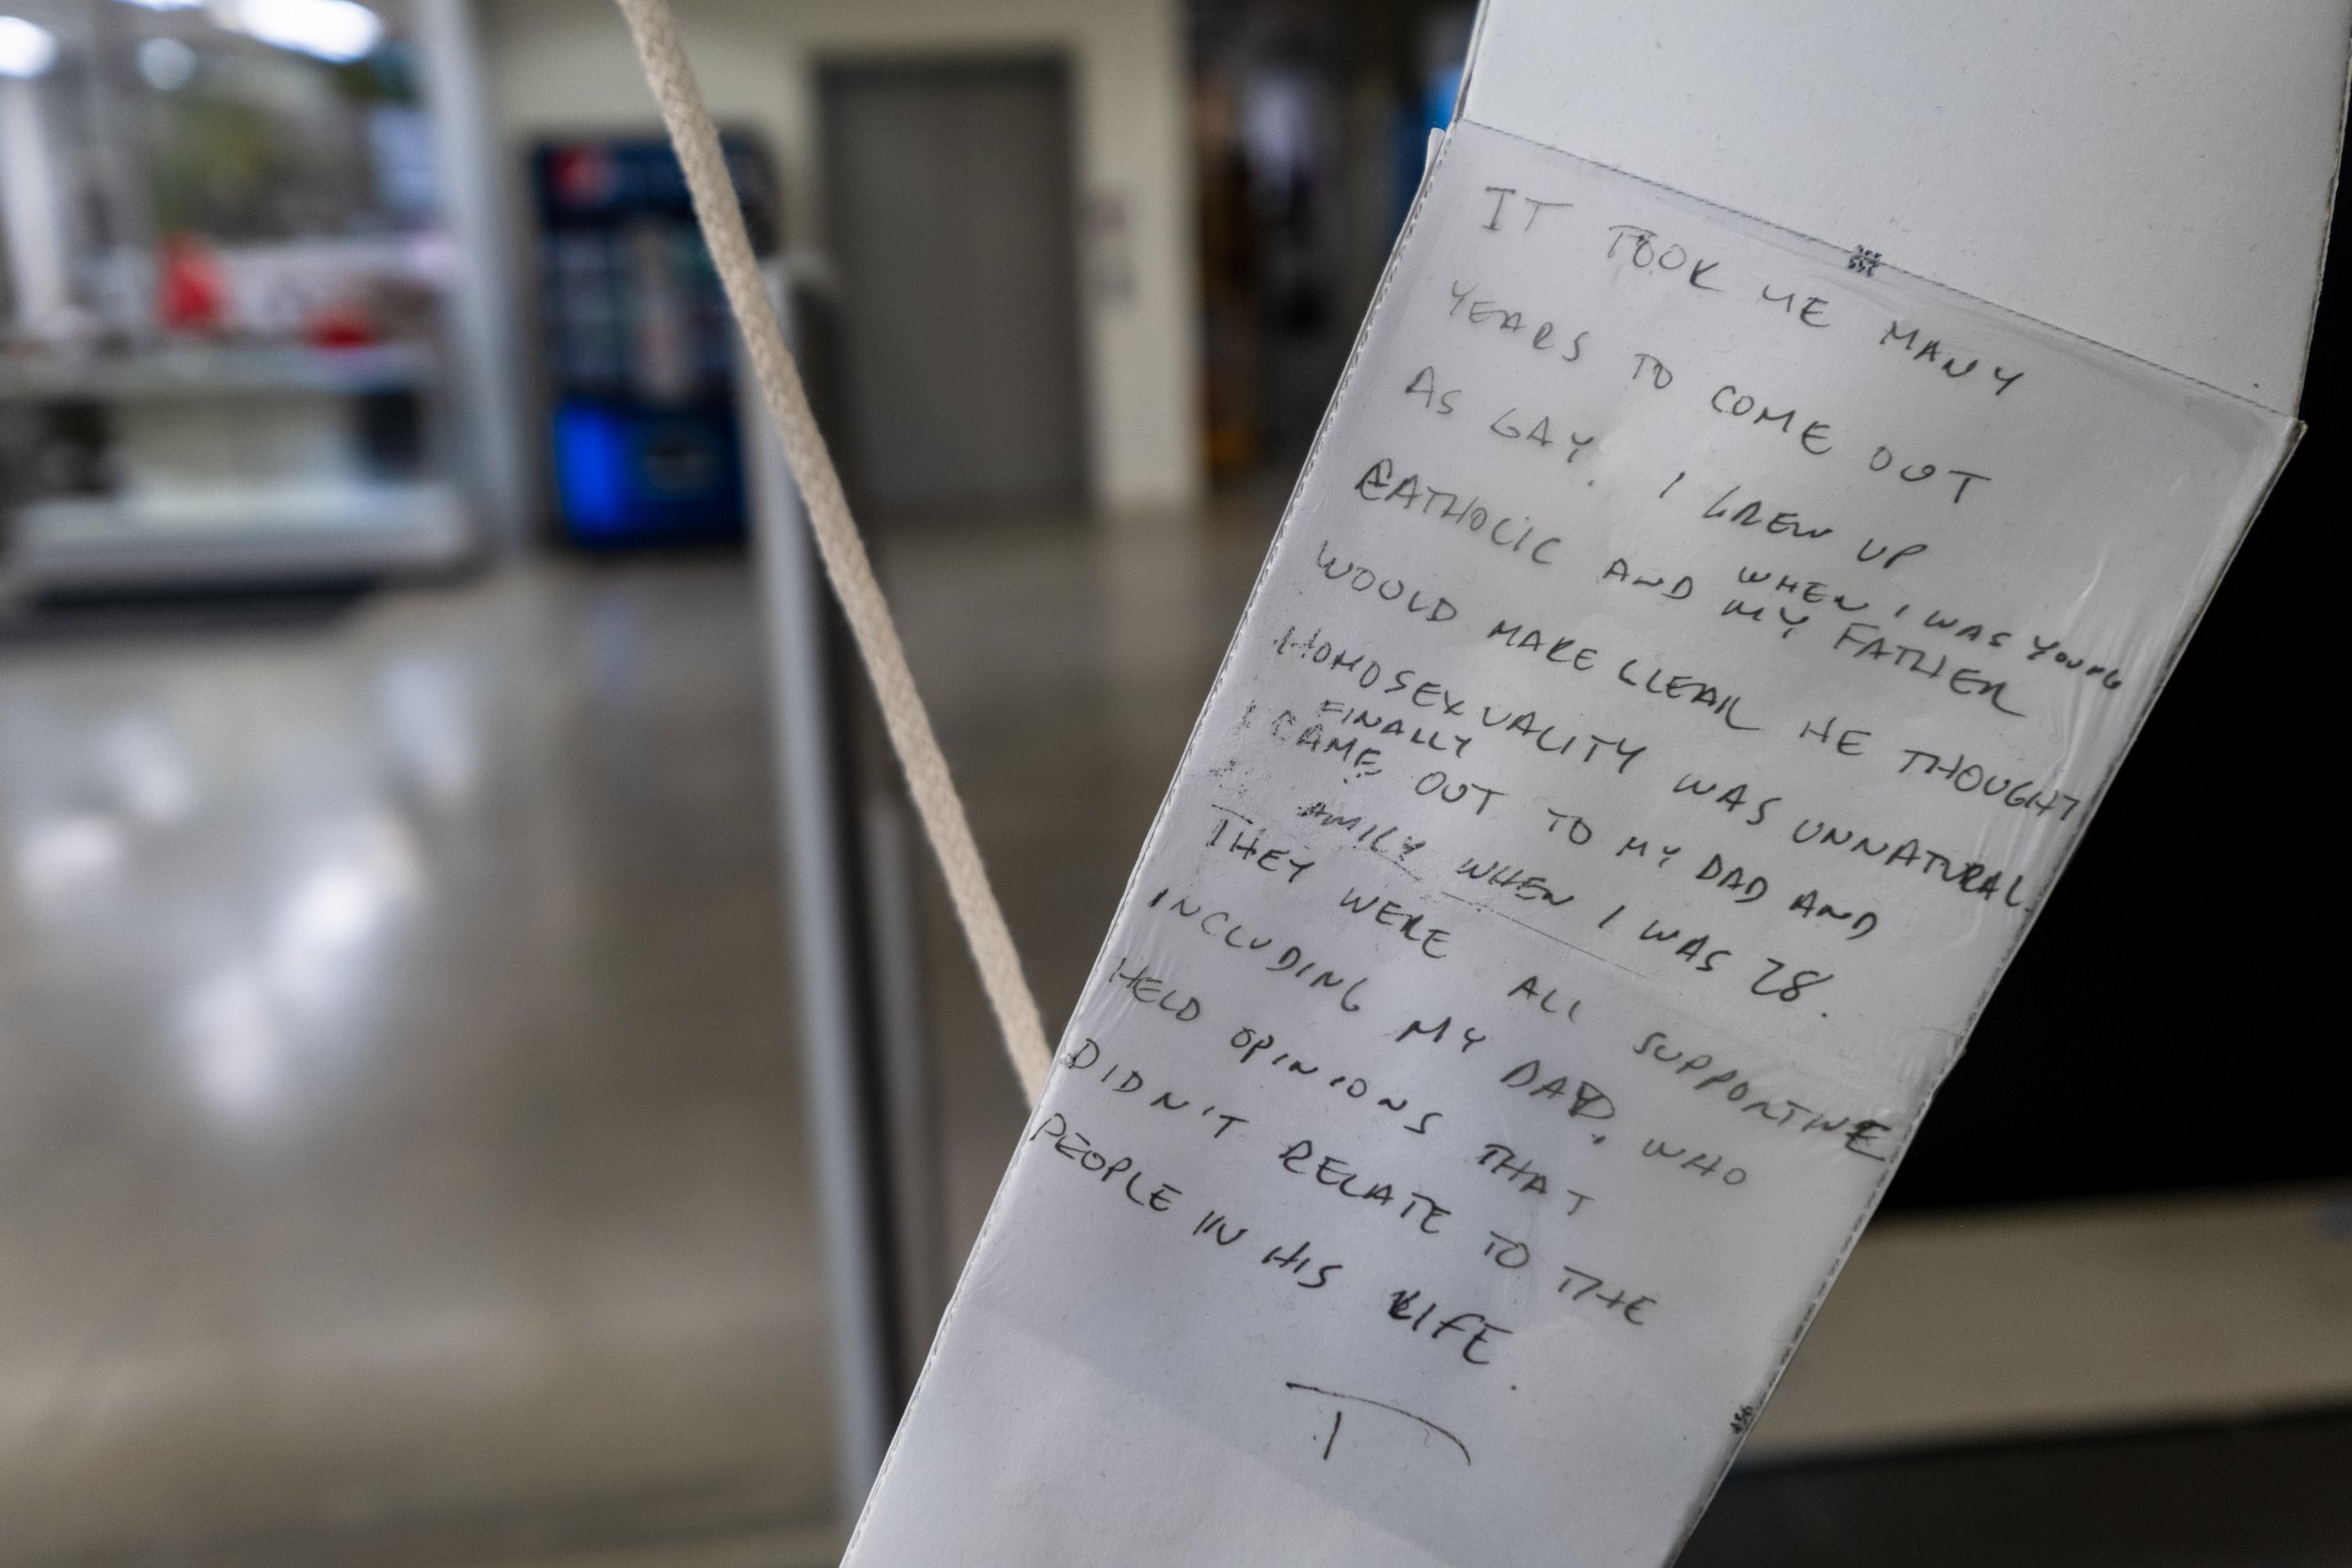 IT TOOK ME MANY
YEARS TO COME OUT
AS GAY. I GREW UP
CATHOLIC AND WHEN I WAS YOUNG
MY FATHER
WOULD MAKE CLEAR HE THOUGHT
HOMOSEXUALITY WAS UNNATURAL.
I FINALLY
CAME OUT TO MY DAD AND
AMILY WHEN I WAS 28.
THEY WERE ALL SUPPORTIVE
INCLUDING MY DAD, WHO
HELD OPINIONS THAT
DIDN'T RELATE TO THE
PEOPLE IN HIS LIFE.